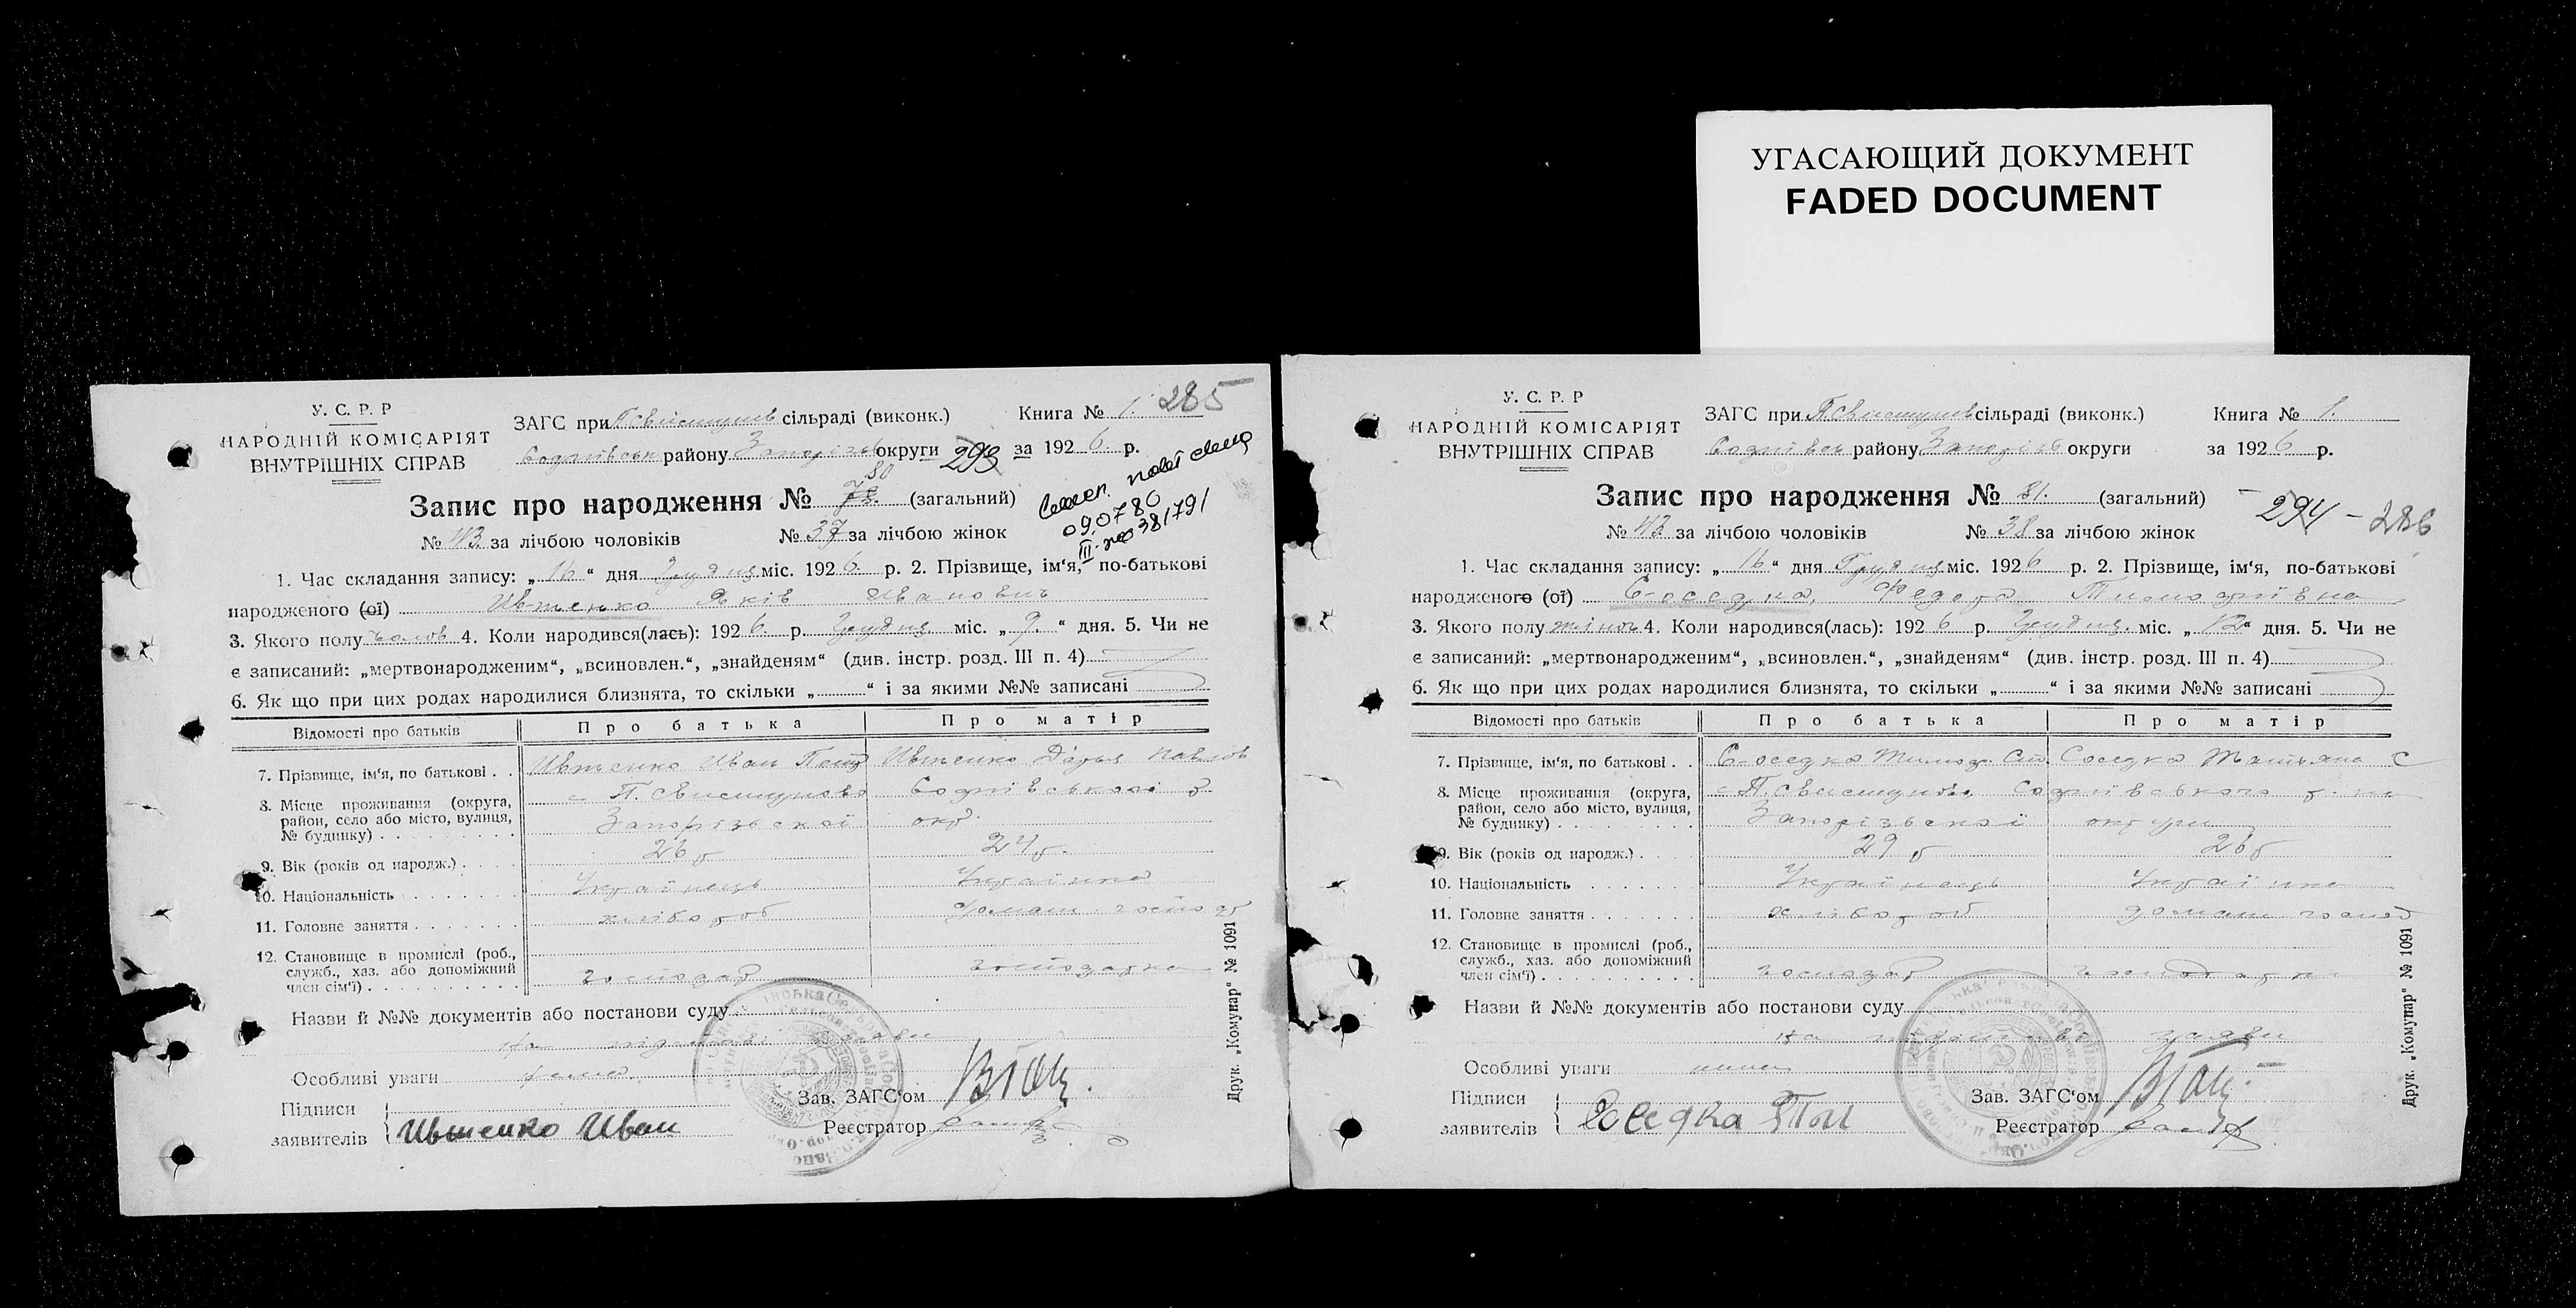 УГАСАЮЩИЙ ДОКУМЕНТ
FADED DOCUMENT
У. С. Р. Р
НАРОДНІЙ КОМІСАРІЯТ
ВНУТРІШНІХ СПРАВ
ЗАГС при П. Свистунів сільраді (виконк.) Книга № 1. 285
району Запорізь округи 293 за 1926 р.
80
Запис про народження № (загальний)
№ 43 за лічбою чоловіків № 37 за лічбою жінок
090780
III-ЖО 381791
1. Час складання запису: „ 16 “ дня Грудня міс. 1926 р. 2. Прізвище, ім‘я, по-батькові
народженого (ої) Ивтенко Яків Иванович
3. Якого полу чолов 4. Коли народився(лась): 1926 р. Грудня міс. „ 9. “ дня. 5. Чи не
є записаний: „мертвонародженим“, „всиновлен.“, „знайденям“ (див. інстр. розд. III п. 4)
6. Як що при цих родах народилися близнята, то скільки „ “ і за якими №№ записані
Відомості про батьків Про батька Про матір
7. Прізвище, ім‘я, по батькові . . Ивтенко Иван Ивтенко Дарья Павлов
8. Місце проживання (округа, с П. Свистуново
район, село або місто, вулиця, Запорізької окр.
№ будинку)
9. Вік (років од народж.) 26 р 24 р.
10. Національність Українець Українка
11. Головне заняття хлібороб домаш. господ
12. Становище в промислі (роб.,
служб., хаз. або допоміжний
член сім‘ї) господар господарка
Назви й №№ документів або постанови суду
на підставі заяви
Особливі уваги нема
Підписи
заявителів Ивтенко Иван
Зав. ЗАГС‘ом
Реєстратор
Друк. „Комунар“ № 1091
У. С. Р. Р
НАРОДНІЙ КОМІСАРІЯТ
ВНУТРІШНІХ СПРАВ
ЗАГС при П. Свистунів сільраді (виконк.) Книга № 1.
району Запорізь округи за 1926 р.
Запис про народження № 81. (загальний) 294 - 286
№ 43 за лічбою чоловіків № 38 за лічбою жінок
1. Час складання запису: „ 16 “ дня Грудня міс. 1926 р. 2. Прізвище, ім‘я, по-батькові
народженого (ої) Соседка, Федора Тимофіївна
3. Якого полу жіноч 4. Коли народився(лась): 1926 р. Грудня міс. „ 12 “ дня. 5. Чи не
є записаний: „мертвонародженим“, „всиновлен.“, „знайденям“ (див. інстр. розд. III п. 4)
6. Як що при цих родах народилися близнята, то скільки „ “ і за якими №№ записані
Відомості про батьків Про батька Про матір
7. Прізвище, ім‘я, по батькові . . Соседка Тимоф. Соседка Татьяна
8. Місце проживання (округа, с П. Свистунів
район, село або місто, вулиця, Запорізької округи
№ будинку)
9. Вік (років од народж.) 29 р 26 р
10. Національність Українець Українка
11. Головне заняття хлібороб домаш. господ
12. Становище в промислі (роб.,
служб., хаз. або допоміжний
член сім‘ї) господар господарка
Назви й №№ документів або постанови суду
на підставі заяви
Особливі уваги нема
Підписи
заявителів Соседка
Зав. ЗАГС‘ом
Реєстратор
Друк. „Комунар“ № 1091